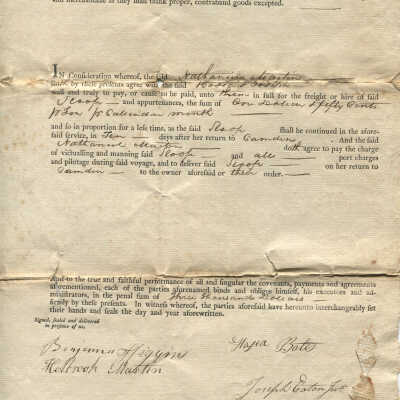 and merchandise as they may think proper, contraband goods excepted.
IN Consideration whereof, the said Nathaniel Martin
doth by these presents agree with the said
well and truly to pay, or cause to be paid, unto them in full for the freight or hire of said
Sloop — and appurtenances, the sum of One Dollar & fifty Cents
pr Ton pr Calendar month
and so in proportion for a less time, as the said Sloop shall be continued in the afore-
said service, in Ten days after her return to Camden — And the said
Nathaniel Martin doth agree to pay the charge
of victualling and manning said Sloop — and all — port charges
and pilotage during said voyage, and to deliver said Sloop — on her return to
Camden — to the owner aforesaid or their order. —
And to the true and faithful performance of all and singular the covenants, payments and agreements
aforementioned, each of the parties aforenamed binds and obliges himself, his executors and ad-
ministrators, in the penal sum of three thousand Dollars —
firmly by these presents. In witness whereof, the parties aforesaid have hereunto interchangeably set
their hands and seals the day and year aforewritten.
Signed, sealed and delivered
in presence of us,
Benjamin Higgins
Holbrook Martin
Bates
Joseph Eaton